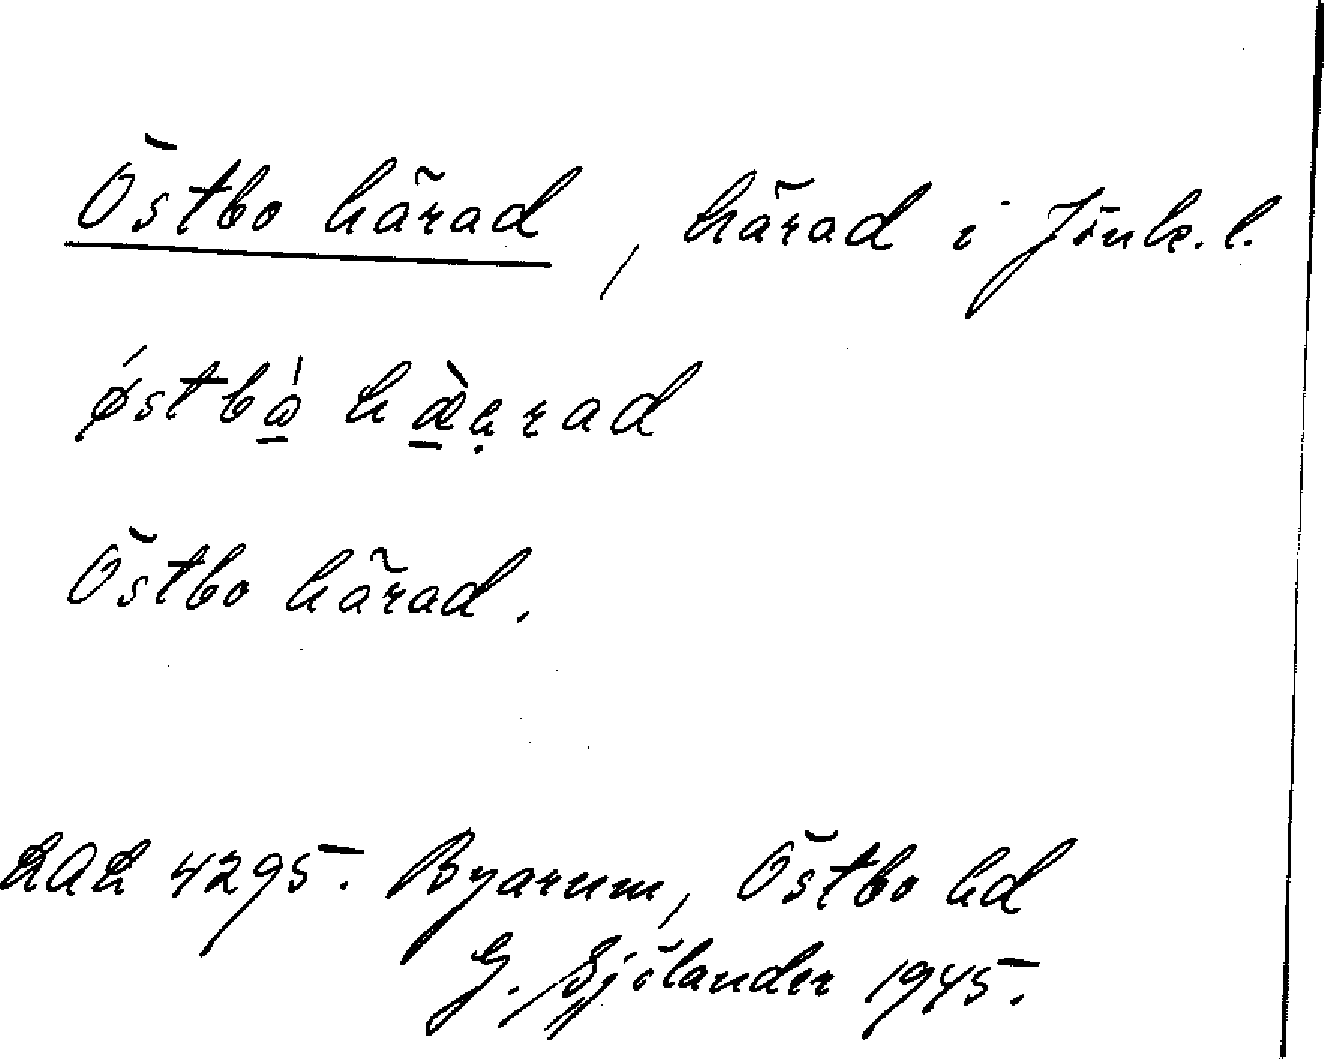 Östbo härad, härad i Jönk. l.
Östbo härad.
4295. Byarum, Östbo hd
G. Sjölander 1945.